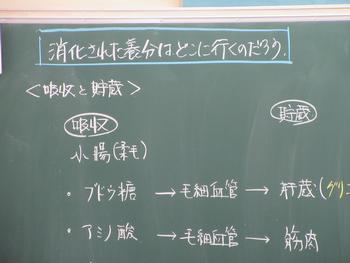 消化された養分はどこに行くのだろう.
<吸収と貯蔵>
吸収 貯蔵
小腸(柔毛)
・ブドウ糖 → 毛細血管 → 貯蔵(グリコ
・アミノ酸 → 毛細血管 → 筋肉